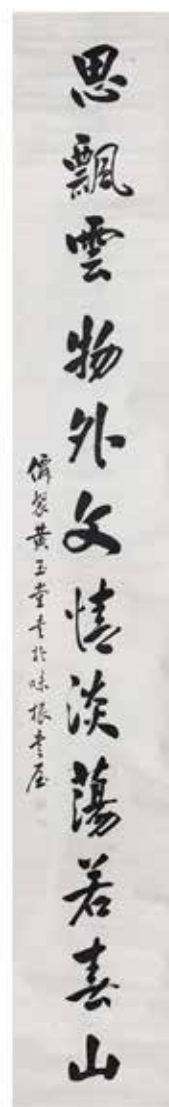 思飄雲物外文情淡蕩若春山
黃玉堂書於味根書屋